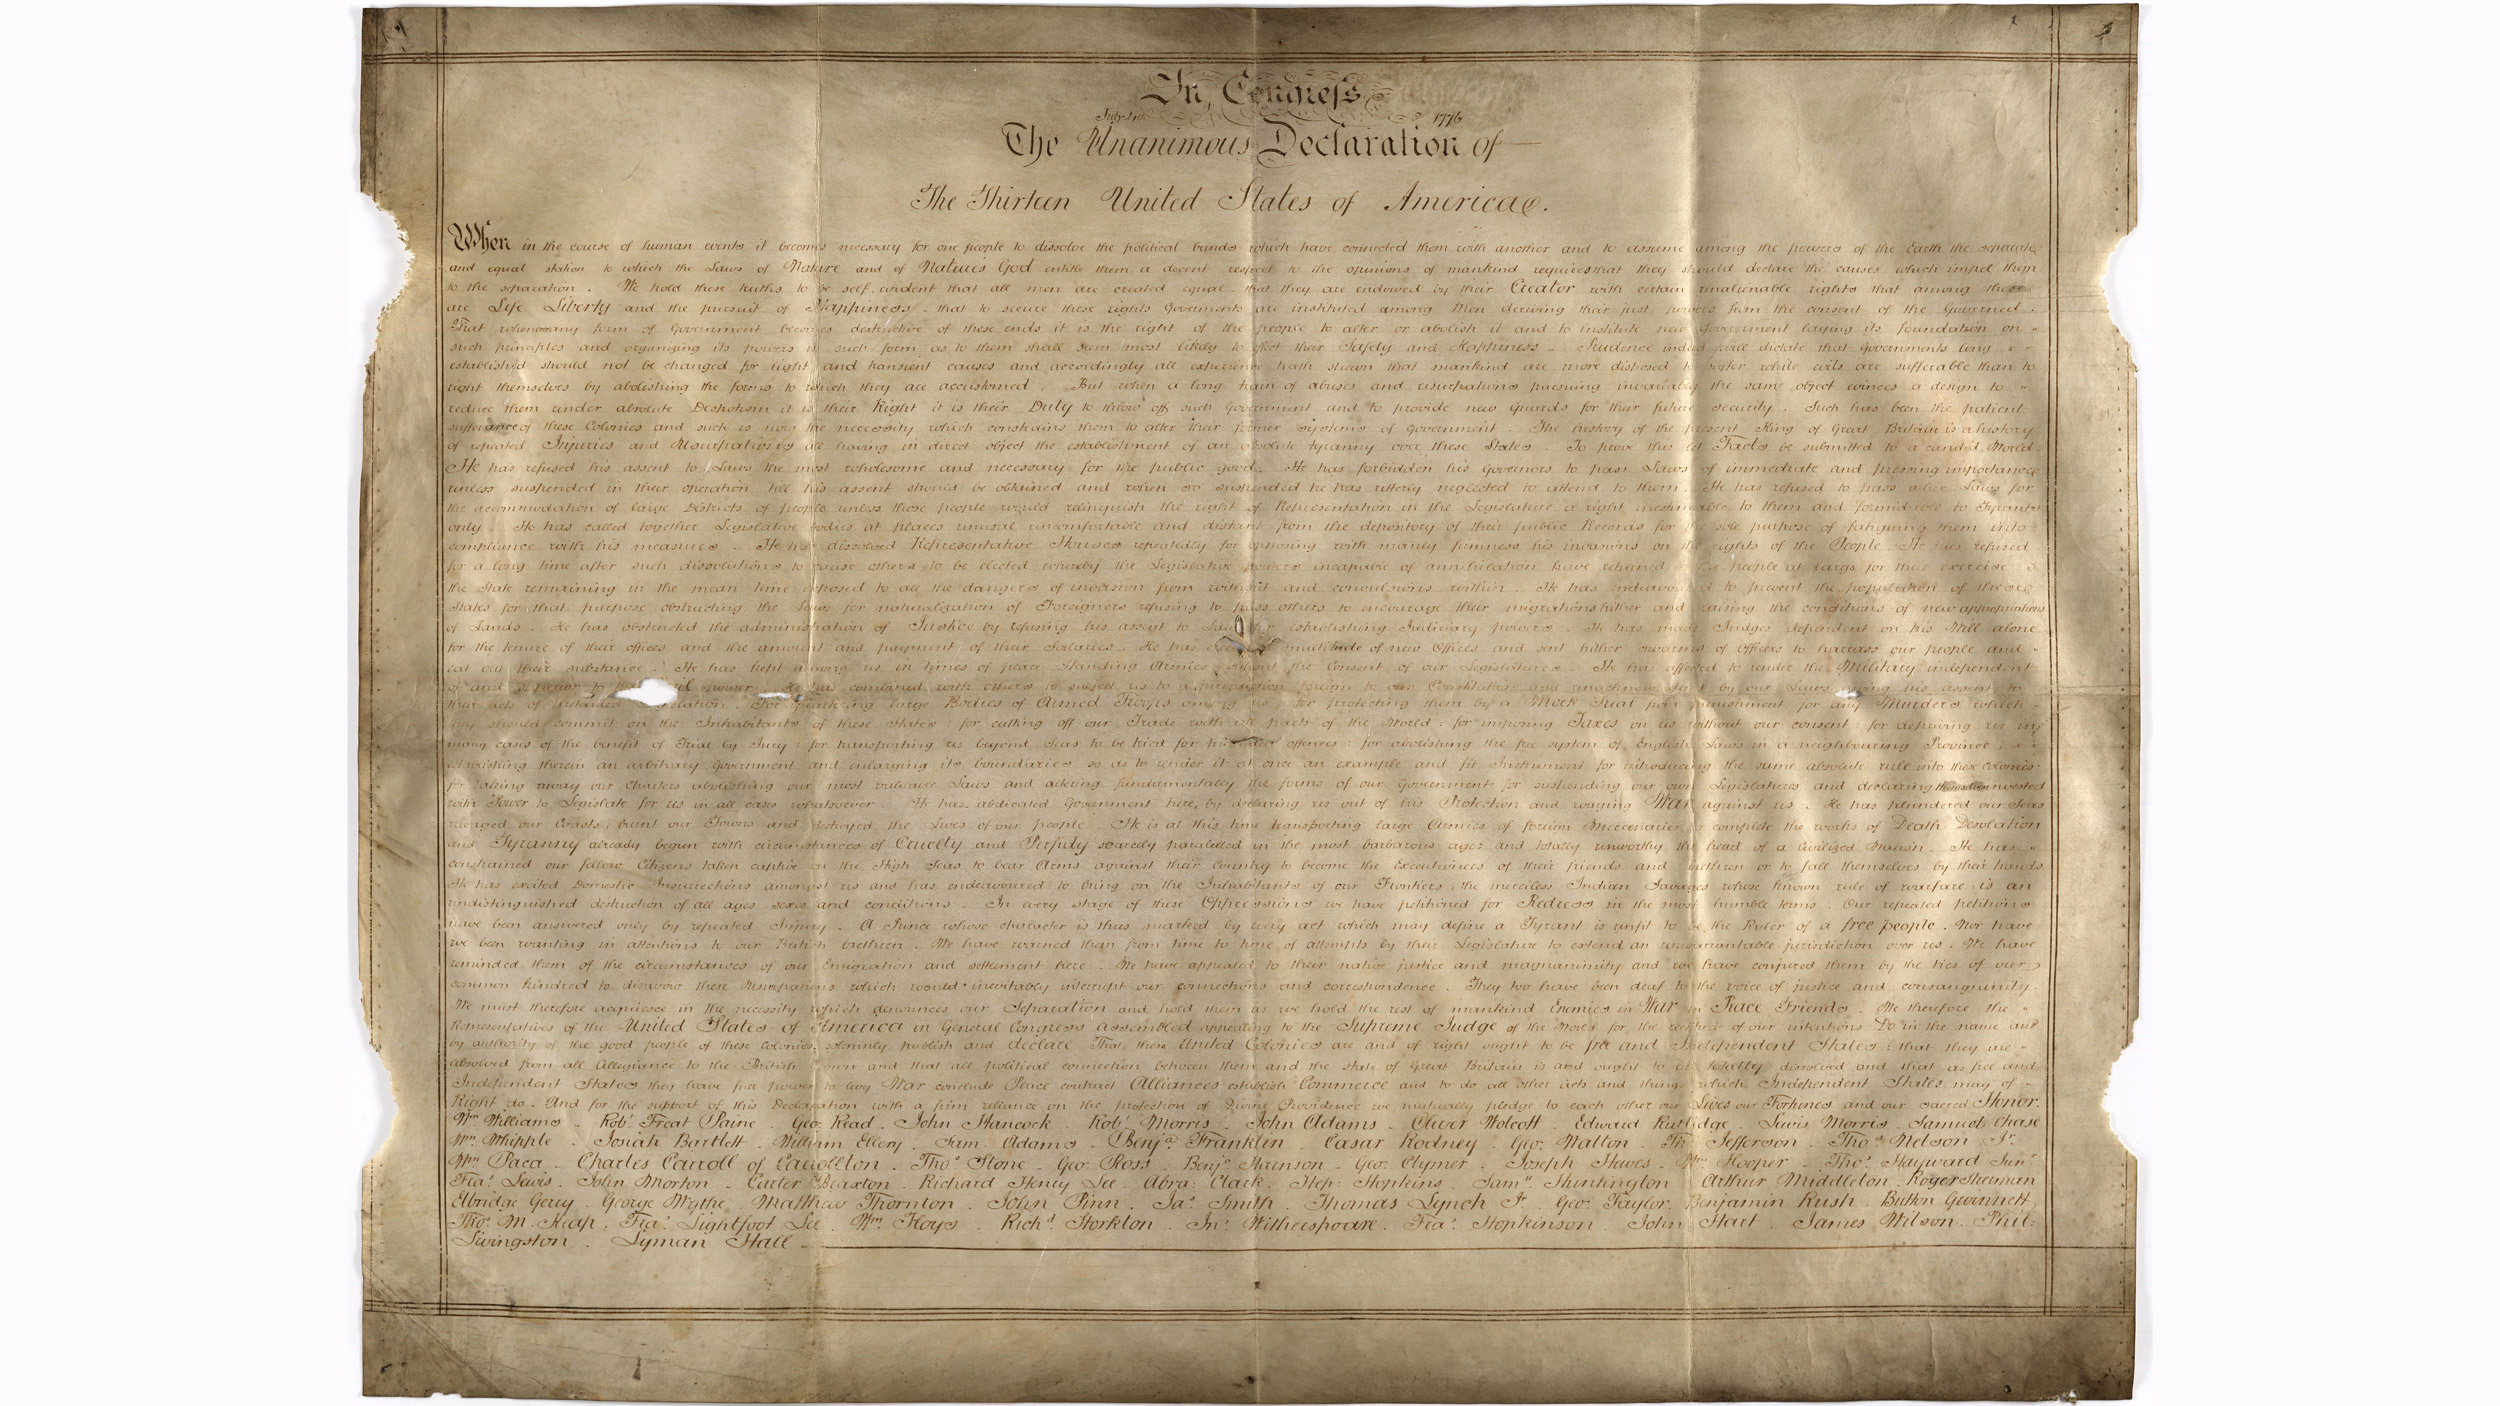 In Congress
July 4th 1776
The Unanimous Declaration of
The Thirteen United States of America.
When in the course of human events it becomes necessary for one people to dissolve the political bands which have connected them with another and to assume among the powers of the Earth the separate
and equal station to which the Laws of Nature and of Nature's God entitle them a decent respect to the opinions of mankind requires that they should declare the causes which impel them
to the separation. We hold these truths to be self-evident that all men are created equal, that they are endowed by their Creator with certain unalienable rights that among these
are Life Liberty and the pursuit of Happiness - that to secure these rights Governments are instituted among Men deriving their just powers from the consent of the Governed.
That whenever any form of Government becomes destructive of these ends it is the right of the people to alter or abolish it and to institute new Government laying its foundation on
such principles and organizing its powers in such form as to them shall seem most likely to effect their Safety and Happiness - Prudence indeed will dictate that Governments long
established should not be changed for light and transient causes and accordingly all experience hath shewn that mankind are more disposed to suffer while evils are sufferable than to
right themselves by abolishing the forms to which they are accustomed. But when a long train of abuses and usurpations pursuing invariably the same object evinces a design to
reduce them under absolute Despotism it is their Right it is their Duty to throw off such Government and to provide new Guards for their future security. Such has been the patient
sufferance of these Colonies and such is now the necessity which constrains them to alter their former systems of Government. The history of the present King of Great Britain is a history
of repeated Injuries and Usurpations all having in direct object the establishment of an absolute tyranny over these States. To prove this let Facts be submitted to a candid World.
He has refused his assent to Laws the most wholesome and necessary for the public good. He has forbidden his Governors to pass Laws of immediate and pressing importance
unless suspended in their operation till his assent should be obtained and when so suspended he has utterly neglected to attend to them. He has refused to pass other Laws for
the accommodation of large Districts of people unless those people would relinquish the right of Representation in the Legislature a right inestimable to them and formidable to Tyrants
only. He has called together Legislative bodies at places unusual uncomfortable and distant from the depository of their public Records for the sole purpose of fatiguing them into
compliance with his measures. He has dissolved Representative Houses repeatedly for opposing with manly firmness his invasions on the rights of the People. He has refused
for a long time after such dissolutions to cause others to be elected whereby the Legislative powers incapable of annihilation have returned to the people at large for their exercise
the State remaining in the mean time exposed to all the dangers of invasion from without and convulsions within. He has endeavoured to prevent the population of these
States for that purpose obstructing the Laws for naturalization of Foreigners refusing to pass others to encourage their migrations hither and raising the conditions of new appropriations
of Lands. He has obstructed the administration of Justice by refusing his assent to Laws for establishing Judiciary powers. He has made Judges dependent on his Will alone
for the tenure of their offices and the amount and payment of their Salaries. He has multitude of new Offices and sent hither swarms of officers to harrass our people and
eat out their substance. He has kept among us in times of peace Standing Armies without the Consent of our Legislatures. He has affected to render the Military independent
of and superior to the power. He has combined with others to subject us to a jurisdiction foreign to our Constitution and by our Laws giving his assent to
their acts of pretended legislation. For quartering large Bodies of Armed Troops among us for protecting them by a Mock Trial from punishment for any Murders which
they should commit on the Inhabitants of these States: for cutting off our Trade with all parts of the World: for imposing Taxes on us without our consent: for depriving us in
many cases of the benefit of Trial by Jury: for transporting us beyond Seas to be tried for offences: for abolishing the free system of English Laws in a neighbouring Province,
establishing therein an arbitrary Government and enlarging its boundaries so as to render it at once an example and fit Instrument for introducing the same absolute rule into these Colonies:
for taking away our Charters abolishing our most valuable Laws and altering fundamentally the forms of our Government for suspending our own Legislatures and declaring themselves invested
with Power to Legislate for us in all cases whatsoever. He has abdicated Government here, by declaring us out of his Protection and waging War against us. He has plundered our Seas
ravaged our Coasts, burnt our Towns and destroyed the Lives of our people. He is at this time transporting large Armies of foreign Mercenaries to complete the works of Death Desolation
and Tyranny already begun with circumstances of Cruelty and Perfidy scarcely paralelled in the most barbarous ages and totally unworthy the head of a Civilized Nation. He has
constrained our fellow Citizens taken captive on the High Seas to bear Arms against their Country to become the Executioners of their friends and brethren or to fall themselves by their hands.
He has excited Domestic Insurrections amongst us and has endeavoured to bring on the Inhabitants of our Frontiers, the merciless Indian Savages whose known rule of warfare is an
undistinguished destruction of all ages sexes and conditions. In every stage of these Oppressions we have petitioned for Redress in the most humble terms. Our repeated petitions
have been answered only by repeated Injury. A Prince whose character is thus marked by every act which may define a Tyrant is unfit to be the Ruler of a free people. Nor have
we been wanting in attentions to our British brethren. We have warned them from time to time of attempts by their Legislature to extend an unwarrantable jurisdiction over us. We have
reminded them of the circumstances of our Emigration and settlement here. We have appealed to their native justice and magnanimity and we have conjured them by the ties of our
common kindred to disavow these Usurpations which would inevitably interrupt our connections and correspondence. They too have been deaf to the voice of justice and consanguinity.
We must therefore acquiesce in the necessity which denounces our Separation and hold them as we hold the rest of mankind Enemies in War in Peace Friends. We therefore the
Representatives of the United States of America in General Congress assembled appealing to the Supreme Judge of the World for the rectitude of our intentions Do in the name and
by authority of the good people of these Colonies solemnly publish and declare That these United Colonies are and of right ought to be free and Independent States: that they are
absolved from all Allegiance to the British Crown and that all political connection between them and the state of Great Britain is and ought to be totally dissolved and that as free and
Independent States they have full power to levy War conclude Peace contract Alliances establish Commerce and to do all other Acts and things which Independent States may of
Right do. And for the support of this Declaration with a firm reliance on the protection of Divine Providence we mutually pledge to each other our Lives our Fortunes and our sacred Honor.
Wm Williams - Robt Treat Paine - Geo. Read - John Hancock - Robt Morris - John Adams - Oliver Wolcott - Edward Rutlidge - Lewis Morris - Samuel Chase
Wm Whipple - Josiah Bartlett - William Ellery - Sam. Adams - Benja Franklin - Casar Rodney - Geo: Walton - Th Jefferson - Thos Nelson Jr
Wm Paca - Charles Carroll of Carrollton - Thos Stone - Geo: Ross - Benja Harrison - Geo: Clymer - Joseph Hewes - Wm Hooper - Thos Hayward Junr
Fras Lewis - John Morton - Carter Braxton - Richard Henry Lee - Abra: Clark - Step: Hopkins - Saml Huntington - Arthur Middleton - Roger Sherman
Elbridge Gerry - George Wythe - Matthew Thornton - John Pinn - Jas Smith - Thomas Lynch Jr - Geo: Taylor - Benjamin Rush - Button Gwinnett
Thos M. Keap - Fras Lightfoot Lee - Wm Floyd - Richd Storkton - Jno Witherspoare - Fras Hopkinson - John Hart - James Wilson - Phil:
Livingston - Lyman Hall